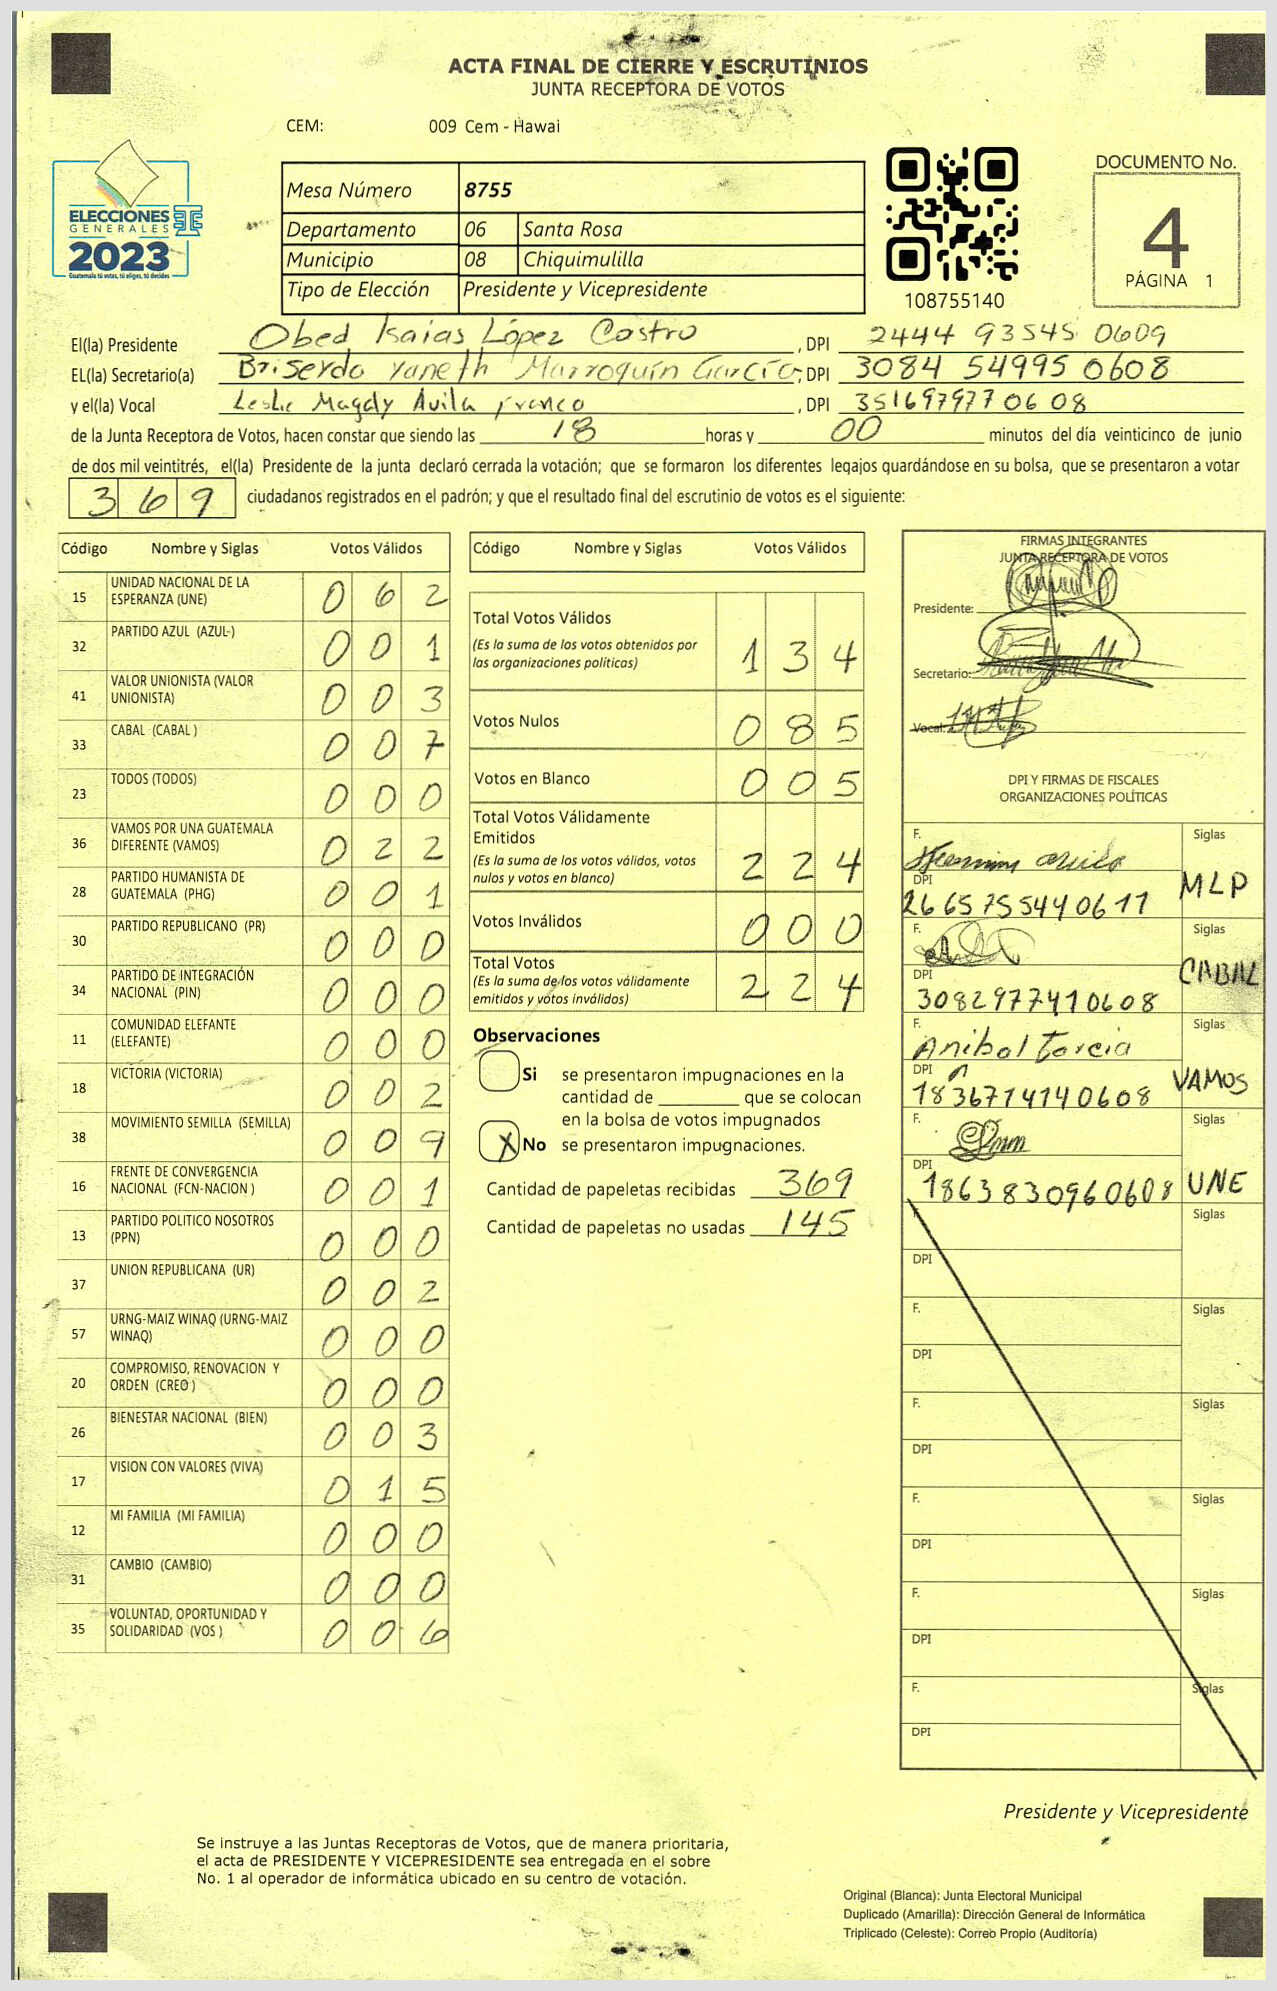 ACTA FINAL DE CIERRE Y ESCRUTINIOS
JUNTA RECEPTORA DE VOTOS
CEM: 009 Cem - Hawai
ELECCIONES
GENERALES
2023
Guatemala tú votas, tú eliges, tú decides
Mesa Número 8755
Departamento 06 Santa Rosa
Municipio 08 Chiquimulilla
Tipo de Elección Presidente y Vicepresidente
108755140
DOCUMENTO No.
4
PÁGINA 1
El(la) Presidente Obed Isaias López Castro, DPI 2444 93545 0609
EL(la) Secretario(a) Briserdo Yaneth Marroquín García, DPI 3084 54995 0608
y el(la) Vocal Leslie Magdy Avila franco, DPI 351697977 0608
de la Junta Receptora de Votos, hacen constar que siendo las 18 horas y 00 minutos del día veinticinco de junio
de dos mil veintitrés, el(la) Presidente de la junta declaró cerrada la votación; que se formaron los diferentes legajos guardándose en su bolsa, que se presentaron a votar
369 ciudadanos registrados en el padrón; y que el resultado final del escrutinio de votos es el siguiente:
Código Nombre y Siglas Votos Válidos
15 UNIDAD NACIONAL DE LA ESPERANZA (UNE) 0 6 2
32 PARTIDO AZUL (AZUL) 0 0 1
41 VALOR UNIONISTA (VALOR UNIONISTA) 0 0 3
33 CABAL (CABAL ) 0 0 7
23 TODOS (TODOS) 0 0 0
36 VAMOS POR UNA GUATEMALA DIFERENTE (VAMOS) 0 2 2
28 PARTIDO HUMANISTA DE GUATEMALA (PHG) 0 0 1
30 PARTIDO REPUBLICANO (PR) 0 0 0
34 PARTIDO DE INTEGRACIÓN NACIONAL (PIN) 0 0 0
11 COMUNIDAD ELEFANTE (ELEFANTE) 0 0 0
18 VICTORIA (VICTORIA) 0 0 2
38 MOVIMIENTO SEMILLA (SEMILLA) 0 0 9
16 FRENTE DE CONVERGENCIA NACIONAL (FCN-NACION ) 0 0 1
13 PARTIDO POLITICO NOSOTROS (PPN) 0 0 0
37 UNION REPUBLICANA (UR) 0 0 2
57 URNG-MAIZ WINAQ (URNG-MAIZ WINAQ) 0 0 0
20 COMPROMISO, RENOVACION Y ORDEN (CREO ) 0 0 0
26 BIENESTAR NACIONAL (BIEN) 0 0 3
17 VISION CON VALORES (VIVA) 0 1 5
12 MI FAMILIA (MI FAMILIA) 0 0 0
31 CAMBIO (CAMBIO) 0 0 0
35 VOLUNTAD, OPORTUNIDAD Y SOLIDARIDAD (VOS ) 0 0 6
Código Nombre y Siglas Votos Válidos
Total Votos Válidos
(Es la suma de los votos obtenidos por
las organizaciones políticas) 1 3 4
Votos Nulos 0 8 5
Votos en Blanco 0 0 5
Total Votos Válidamente
Emitidos
(Es la suma de los votos válidos, votos
nulos y votos en blanco) 2 2 4
Votos Inválidos 0 0 0
Total Votos
(Es la suma de los votos válidamente
emitidos y votos inválidos) 2 2 4
Observaciones
Si se presentaron impugnaciones en la
cantidad de ________ que se colocan
en la bolsa de votos impugnados
X No se presentaron impugnaciones.
Cantidad de papeletas recibidas 369
Cantidad de papeletas no usadas 145
FIRMAS INTEGRANTES
JUNTA RECEPTORA DE VOTOS
Presidente:
Secretario:
Vocal:
DPI Y FIRMAS DE FISCALES
ORGANIZACIONES POLÍTICAS
F. Siglas
DPI MLP
2665755440611
F. Siglas
DPI CABAL
3082977410608
F. Anibal Garcia Siglas
DPI VAMOS
1836714140608
F. Siglas
DPI UNE
1863830960608
F. Siglas
DPI
F. Siglas
DPI
F. Siglas
DPI
F. Siglas
DPI
F. Siglas
DPI
F. Siglas
DPI
Presidente y Vicepresidente
Se instruye a las Juntas Receptoras de Votos, que de manera prioritaria,
el acta de PRESIDENTE Y VICEPRESIDENTE sea entregada en el sobre
No. 1 al operador de informática ubicado en su centro de votación.
Original (Blanca): Junta Electoral Municipal
Duplicado (Amarilla): Dirección General de Informática
Triplicado (Celeste): Correo Propio (Auditoría)